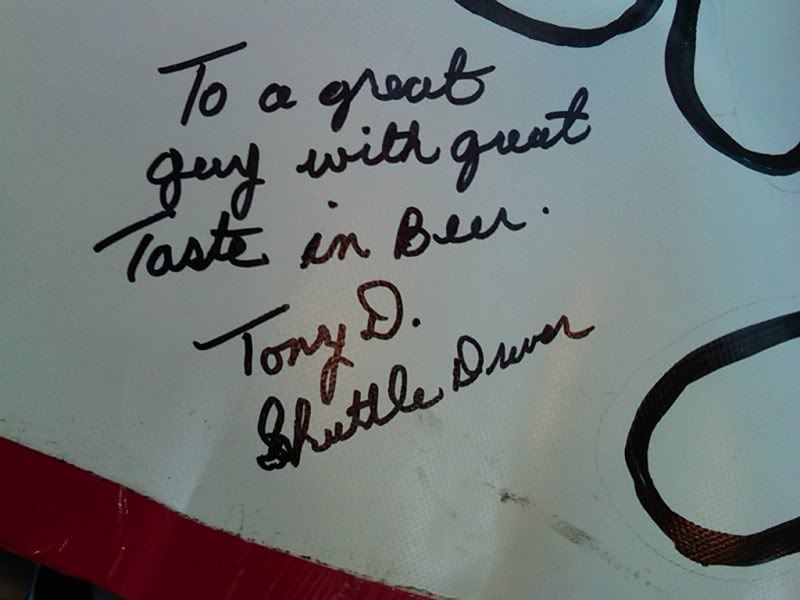 To a great
guy with great
Taste in Beer.
Tony D.
Shuttle Driver